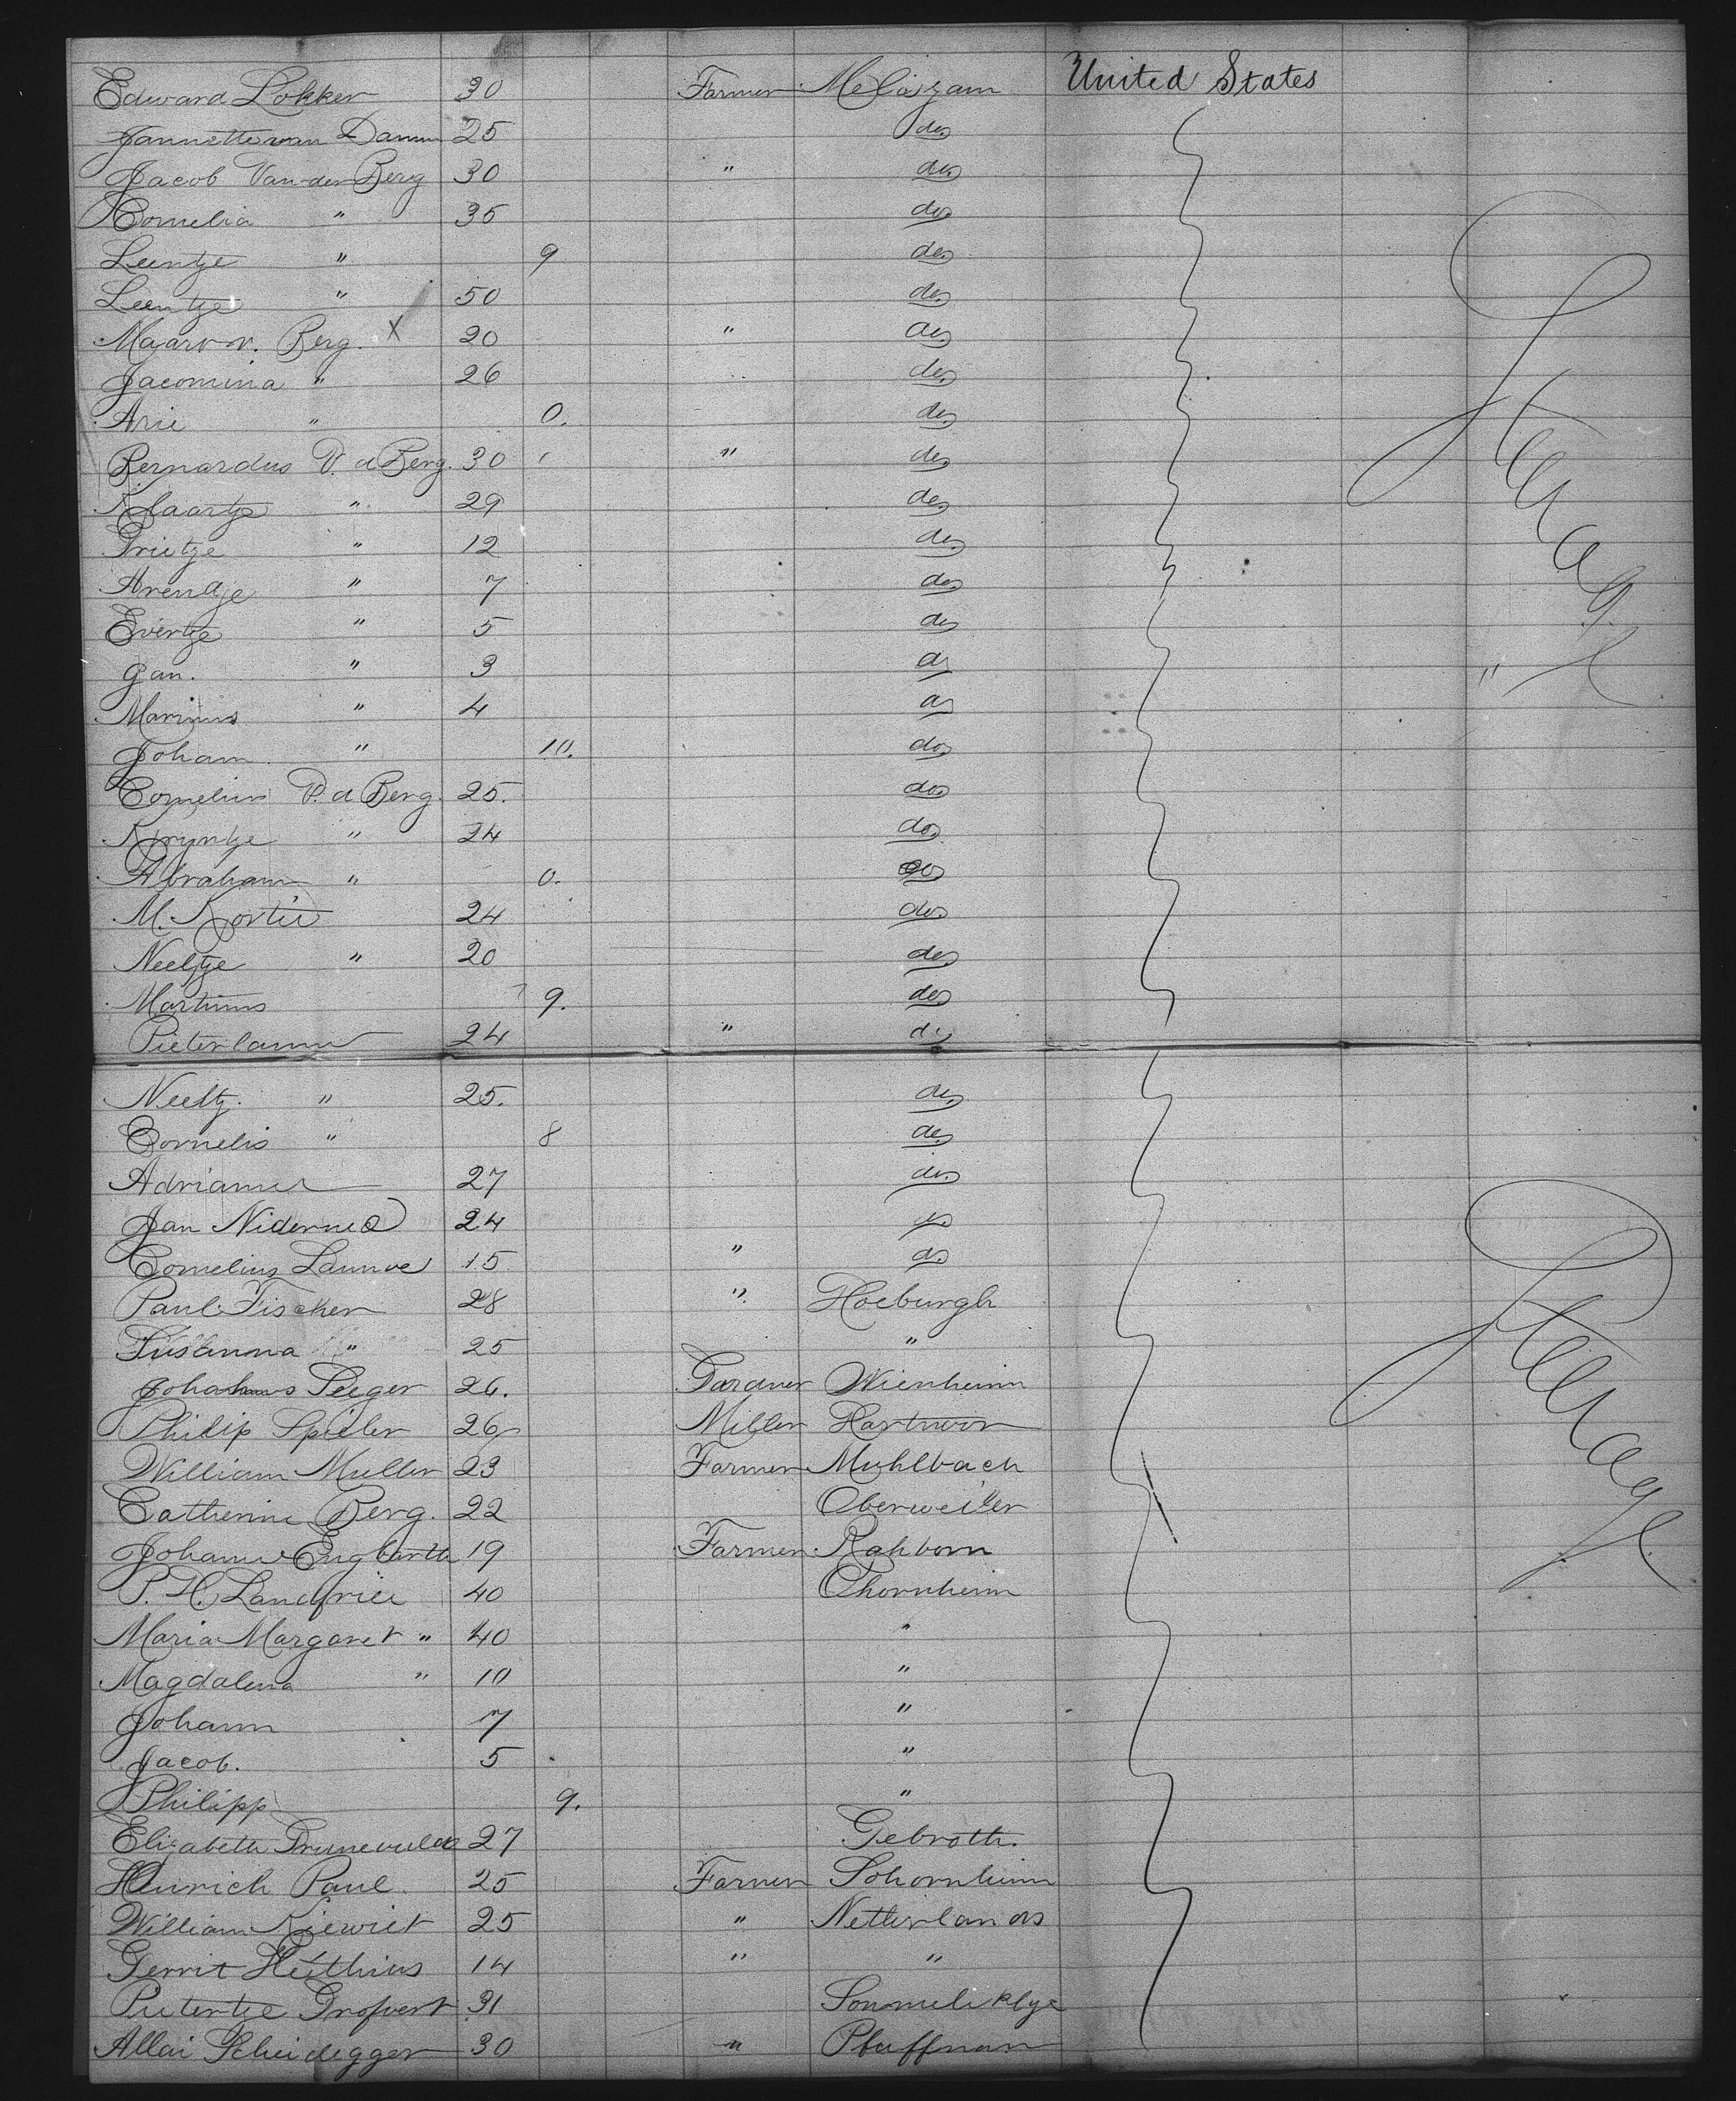 Edward Lokker 30 Farmer Melissam United States
Jannette van Damm 25 do
Jacob Van der Berg 30 " do
Cornelia " 35 do
Leentje " 9 do
Leentje " 50 do
Maart v. Berg. X 20 " do
Jacomina " 26 do
Arie " 0. do
Bernardus V. d Berg. 30 " do
Klaartje " 29 do
Prietje " 12 do
Arendje " 7 do
Evertje " 5 do
Jan. " 3 do
Marinus " 4 do
Joham " 10. do
Cornelius V. d Berg. 25. do
Kryntje " 24 do
Abraham " 0. do
M. Kortie 24 do
Neeltje " 20 do
Martinus 9. do
Pieter 24 " do
Neeltj. " 25. do
Cornelis " 8 do
27 do
Jan 24 do
Cornelius 15 " do
Paul Fischer 28 " Hoeburgh
Susanna " 25 "
Johannes Seeger 26. Gardner Wienheim
Philip Spieler 26 Miller
William Muller 23 Farmer Muhlbach
Catherine Berg. 22 Oberweiler
Johannes Engbarth 19 Farmer Rahborn
P. H. Landfried 40 Thornheim
Maria Margaret " 40 "
Magdalena " 10 "
Johann 7 "
Jacob. 5 "
Philipp 9. "
Elizabeth 27 Gebroth.
Heinrich Paul 25 Farmer Sohornheim
William Kiewiet 25 " Netherlands
Gerrit 14 " "
Pietertje 31
Allai Scheidegger 30 " Pfaffnau
Steerage
Steerage